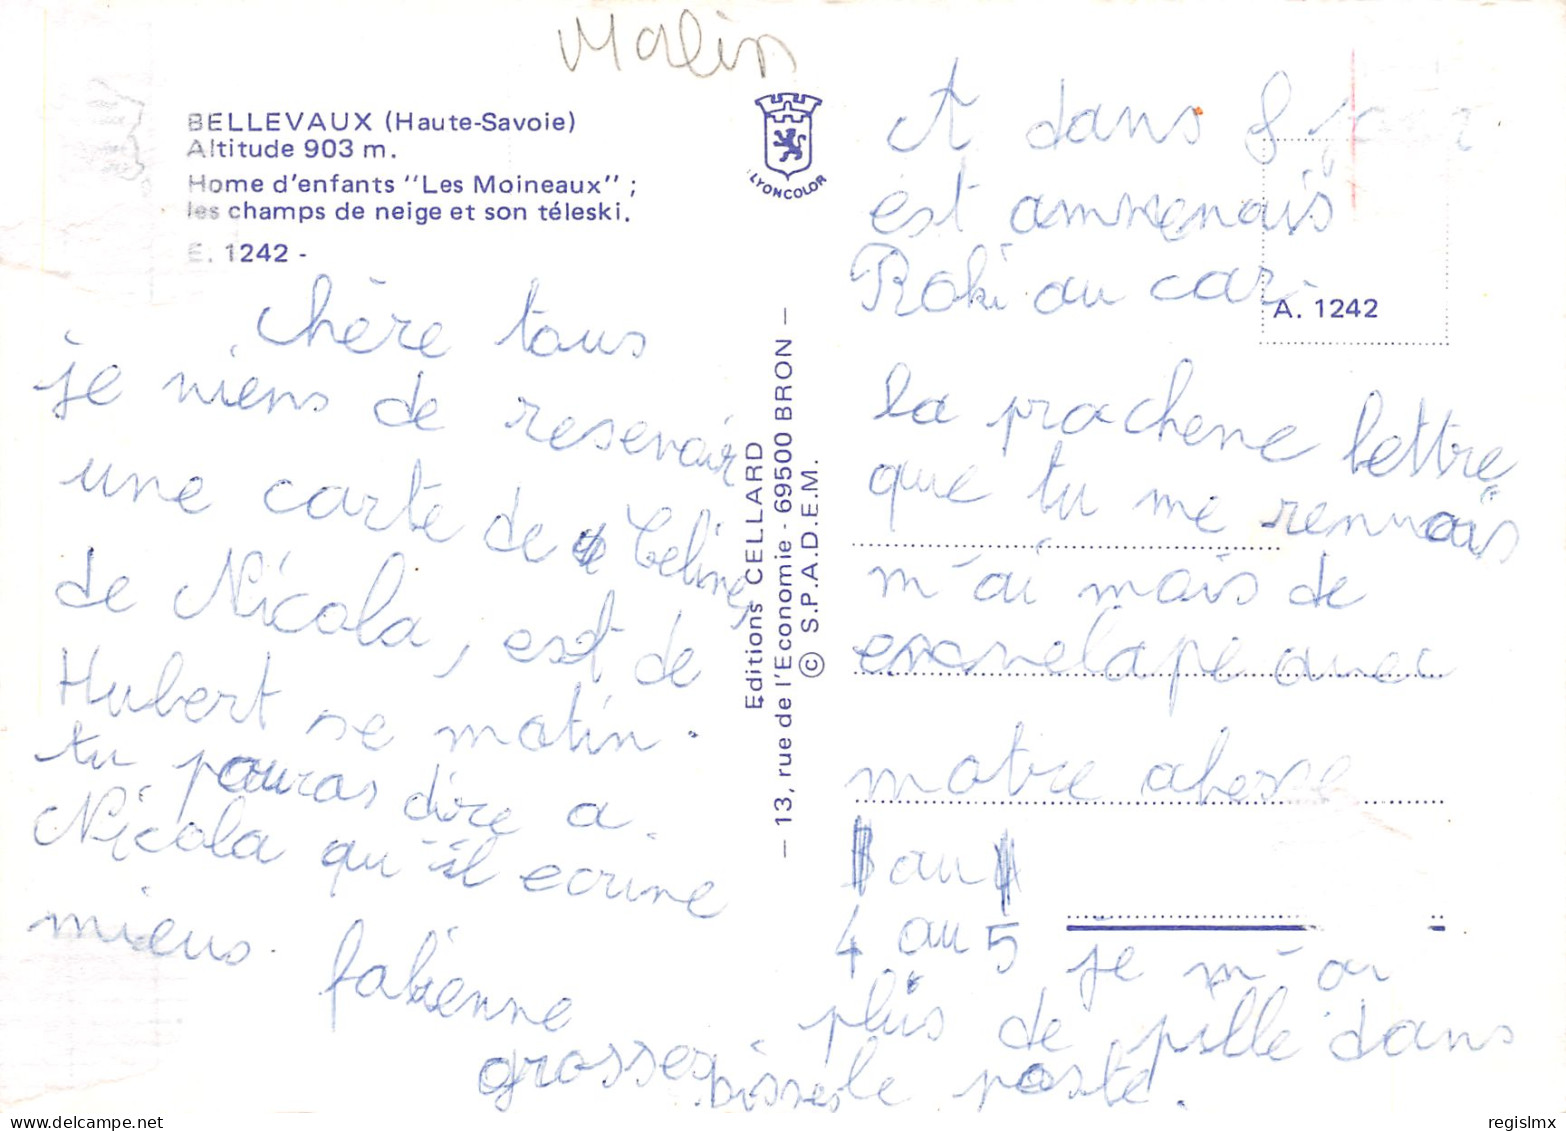 Malin
BELLEVAUX (Haute-Savoie)
Altitude 903 m.
Home d'enfants "Les Moineaux" ;
les champs de neige et son téleski.
E. 1242 -
LYONCOLOR
chère tous
je viens de resevoir
une carte de Céline,
de Nicola, est de
Hubert se matin.
tu pouras dire a
Nicola qu'il ecrive
mieus. fabienne
grosses bisses
Editions CELLARD
— 13, rue de l'Economie - 69500 BRON —
© S.P.A.D.E.M.
A. 1242
et dans 8 jour
est ammenais
Roki au car.
la prochene lettre
que tu me renvoais
m'ai mais de
envelape avec
notre adresse
au
4 au 5
je m'ai
plus de pille dans
le poste.
regislmx